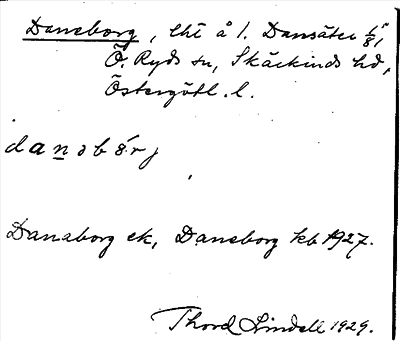 Dansborg, lht å 1. Dansäter 1/8,
Ö. Ryds sn, Skärkinds hd,
Östergötl. l.
dansbårj
Dansborg ek, Dansborg kb 1927.
Thord Lindell 1929.